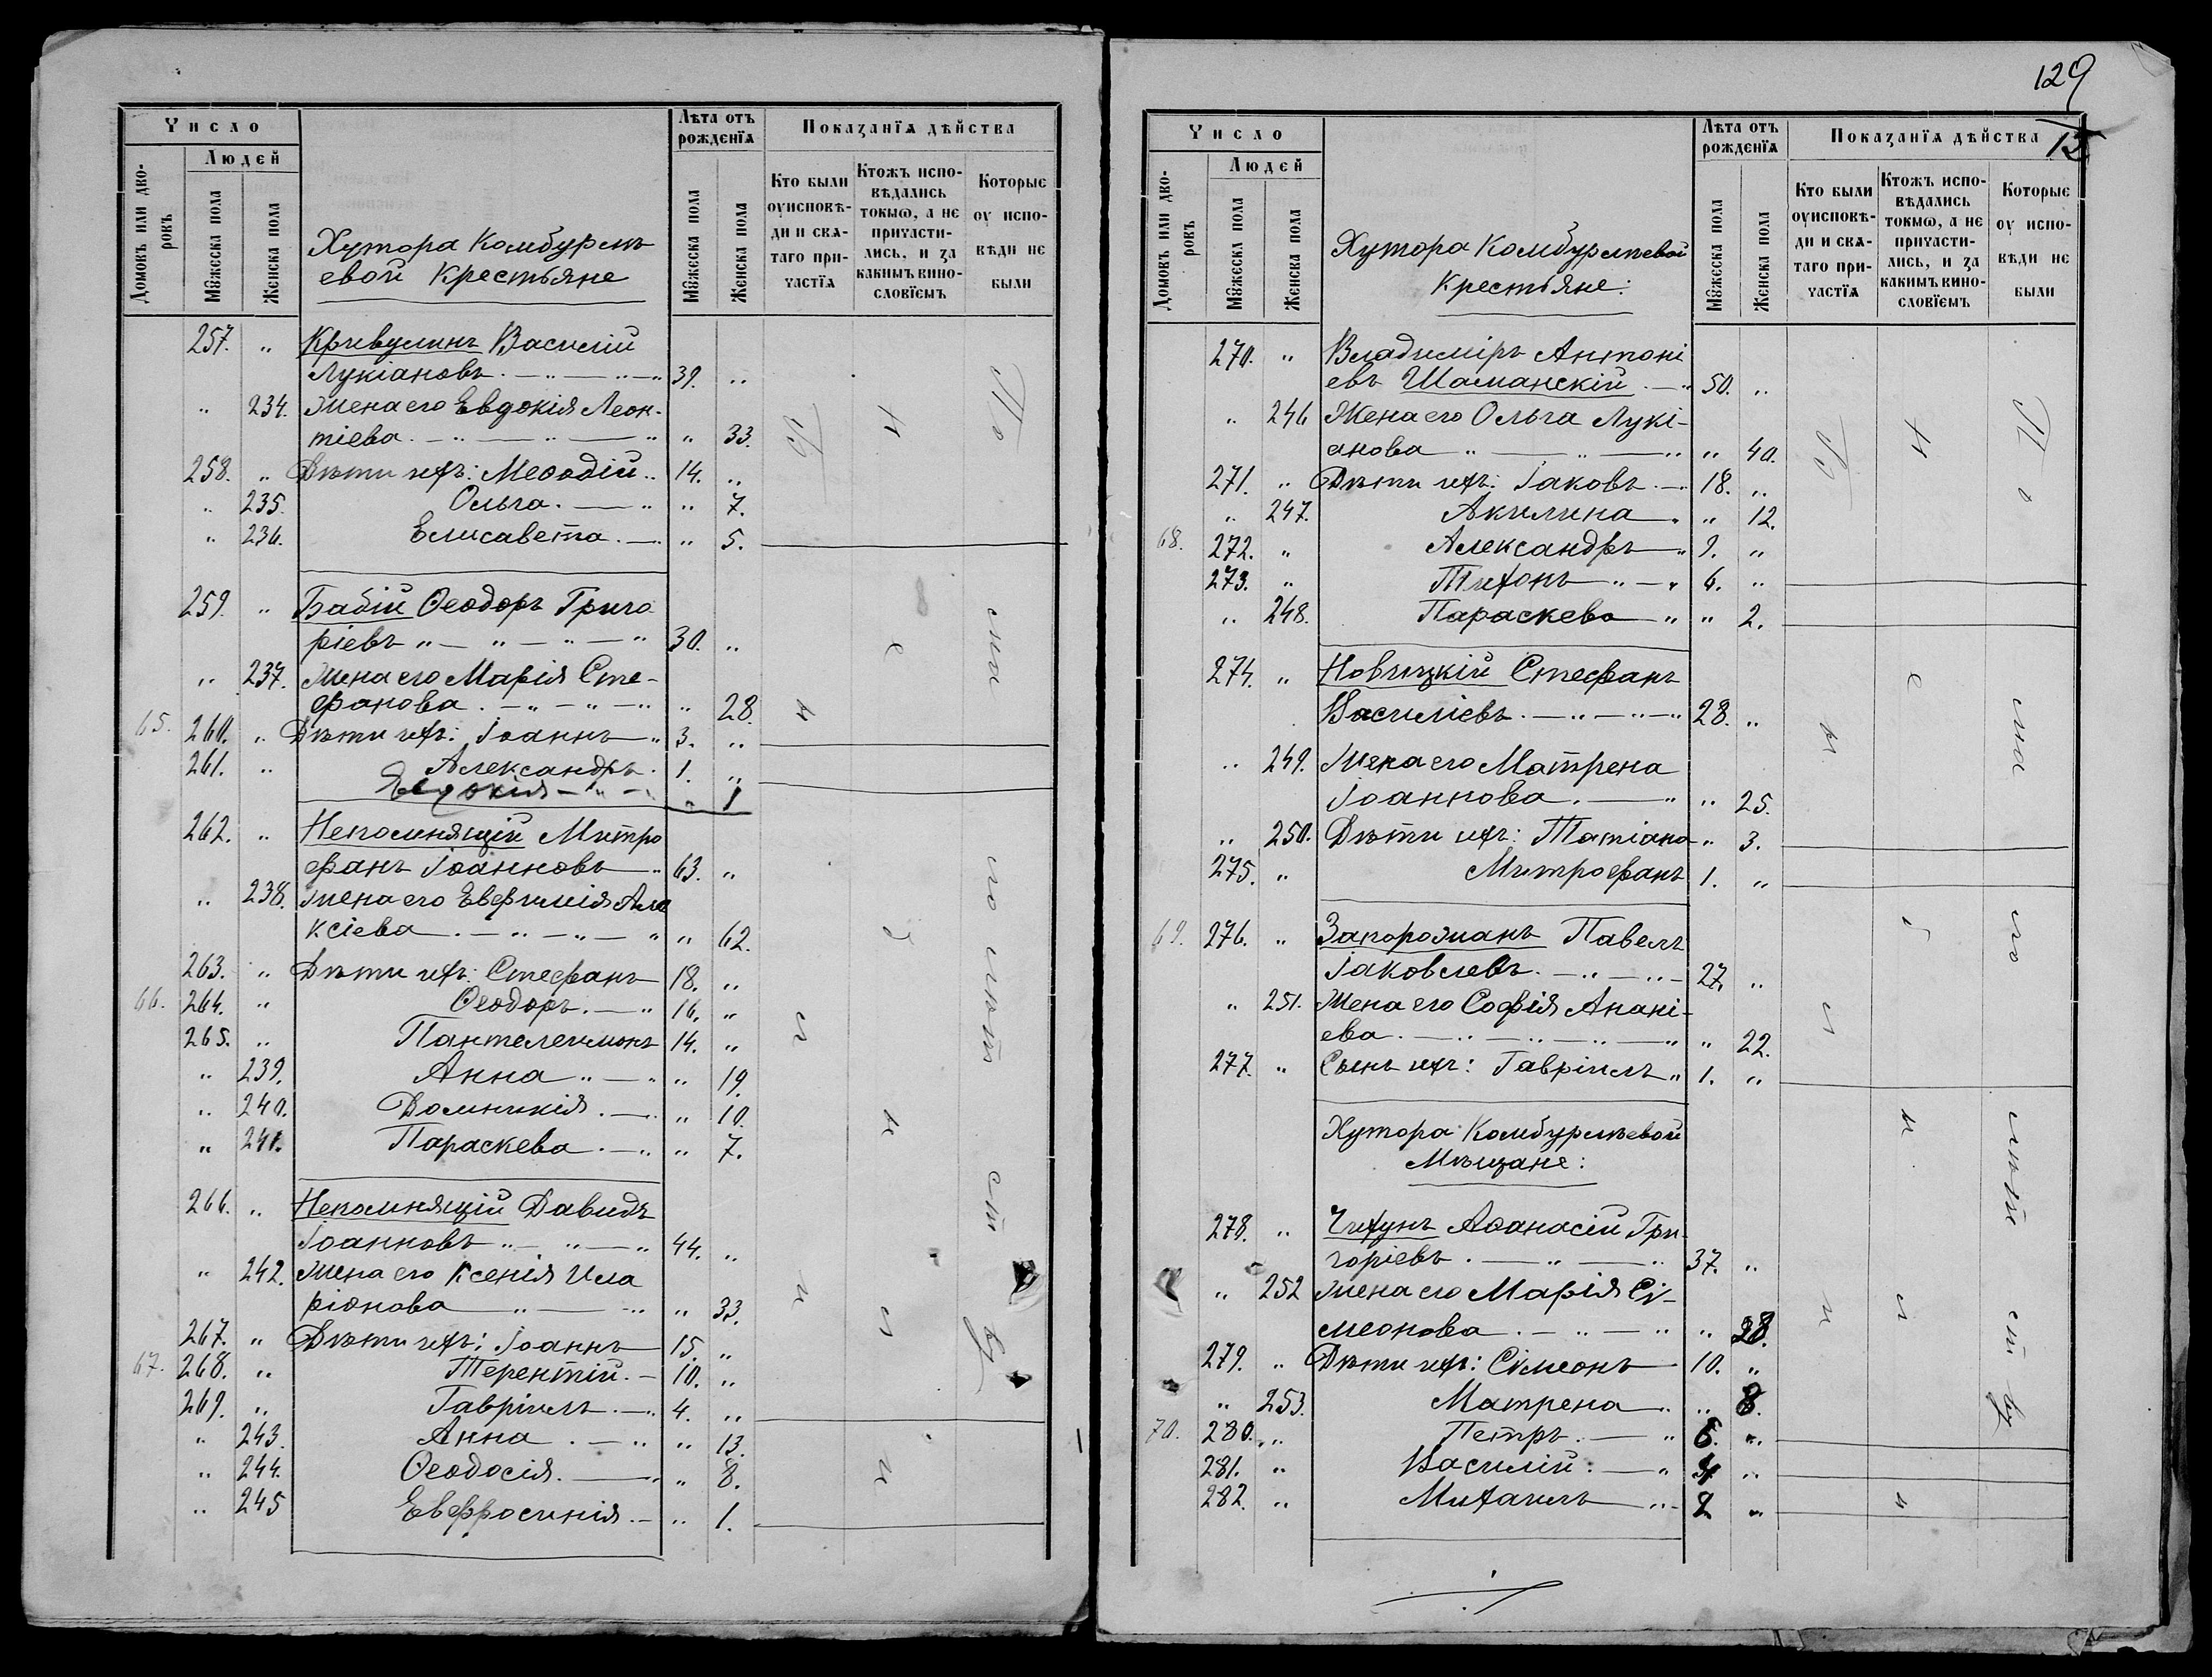 Число
Людей
Домовъ или дворовъ
Мужеска пола
Женска пола
Хутора Камбурлѣ
евой Крестьяне
Лѣта отъ рожденїѧ
Мужеска пола
Женска пола
Показанїѧ дѣйства
Кто были оу исповѣди и свѧтаго причастїѧ
Ктожъ исповѣдались токмѡ, а не причастились, и за какимъ винословїемъ
Которые оу исповѣди не были
257. „ Кривулинъ Василій
Лукіановъ. — „ — „ — „ 39. „
„ 234. Жена его Евдокія Леон-
тіева. — „ — „ — „ „ 33.
258. „ Дѣти ихъ: Меѳодій „ 14. „
„ 235. Ольга. — „ „ 7.
„ 236. Елисавета. — „ „ 5.
259. „ Бабій Ѳеодоръ Григо
ріевъ „ — „ — „ — „ 30. „
„ 237. Жена его Марія Сте-
фанова. — „ — „ — „ „ 28.
65. 260. „ Дѣти ихъ: Іоаннъ „ 3. „
261. „ Александръ. 1. „
Евдокія — „ — „ „ 1
262. „ Непомнящій Митро
фанъ Іоанновъ — „ 63. „
„ 238. Жена его Евфимія Але
ксіева. — „ — „ — „ „ 62.
263. „ Дѣти ихъ: Стефанъ 18. „
66. 264. „ Ѳеодоръ. — „ 16. „
265. „ Пантелеимонъ 14. „
„ 239. Анна „ — „ „ 19.
„ 240. Домникія. — „ „ 10.
„ 241. Параскева. — „ „ 7.
266. „ Непомнящій Давидъ
Іоанновъ „ — „ — „ 44. „
„ 242. Жена его Ксенія Ила
ріонова — „ — „ „ 33.
267. „ Дѣти ихъ: Іоаннъ 15. „
67. 268. „ Терентій. — 10. „
269. „ Гавріилъ. — „ 4. „
„ 243. Анна. — „ „ 13.
„ 244. Ѳеодосія. — „ „ 8.
„ 245 Евфросинія. — „ 1.
129
15
Число
Людей
Домовъ или дворовъ
Мужеска пола
Женска пола
Хутора Камбурлѣевой
Крестьяне:
Лѣта отъ рожденїѧ
Мужеска пола
Женска пола
Показанїѧ дѣйства
Кто были оу исповѣди и свѧтаго причастїѧ
Ктожъ исповѣдались токмѡ, а не причастились, и за какимъ винословїемъ
Которые оу исповѣди не были
270. „ Владиміръ Антоні
евъ Шаманскій. — „ 50. „
„ 246 Жена его Ольга Лукі-
анова „ — „ — „ „ 40.
271. „ Дѣти ихъ: Іаковъ. — „ 18. „
„ 247. Акилина — „ „ 12.
68. 272. „ Александръ — „ 9. „
273. „ Тихонъ „ — „ 6. „
„ 248. Параскева — „ „ 2.
274. „ Новицкій Стефанъ
Василіевъ. — „ — „ — „ 28. „
„ 249. Жена его Матрена
Іоаннова. — „ „ 25.
„ 250. Дѣти ихъ: Татіана „ 3.
275. „ Митрофанъ 1. „
69. 276. „ Запорожанъ Павелъ
Іаковлевъ. — „ — „ — 27. „
„ 251. Жена его Софія Анані-
ева. — „ — „ — „ — „ „ 22.
277. „ Сынъ ихъ: Гавріилъ „ 1. „
Хутора Камбурлѣевой
Мѣщане:
278. „ Чихунъ Аѳанасій Гри-
горіевъ. — „ — „ 37. „
„ 252 Жена его Марія Сѵ-
меонова. — „ — „ „ 28.
279. „ Дѣти ихъ: Сѵмеонъ 10. „
„ 253. Матрена — „ „ 8.
70. 280. „ Петръ. — „ 6. „
281. „ Василій. — „ 4 „
282. „ Михаилъ — „ 2 „